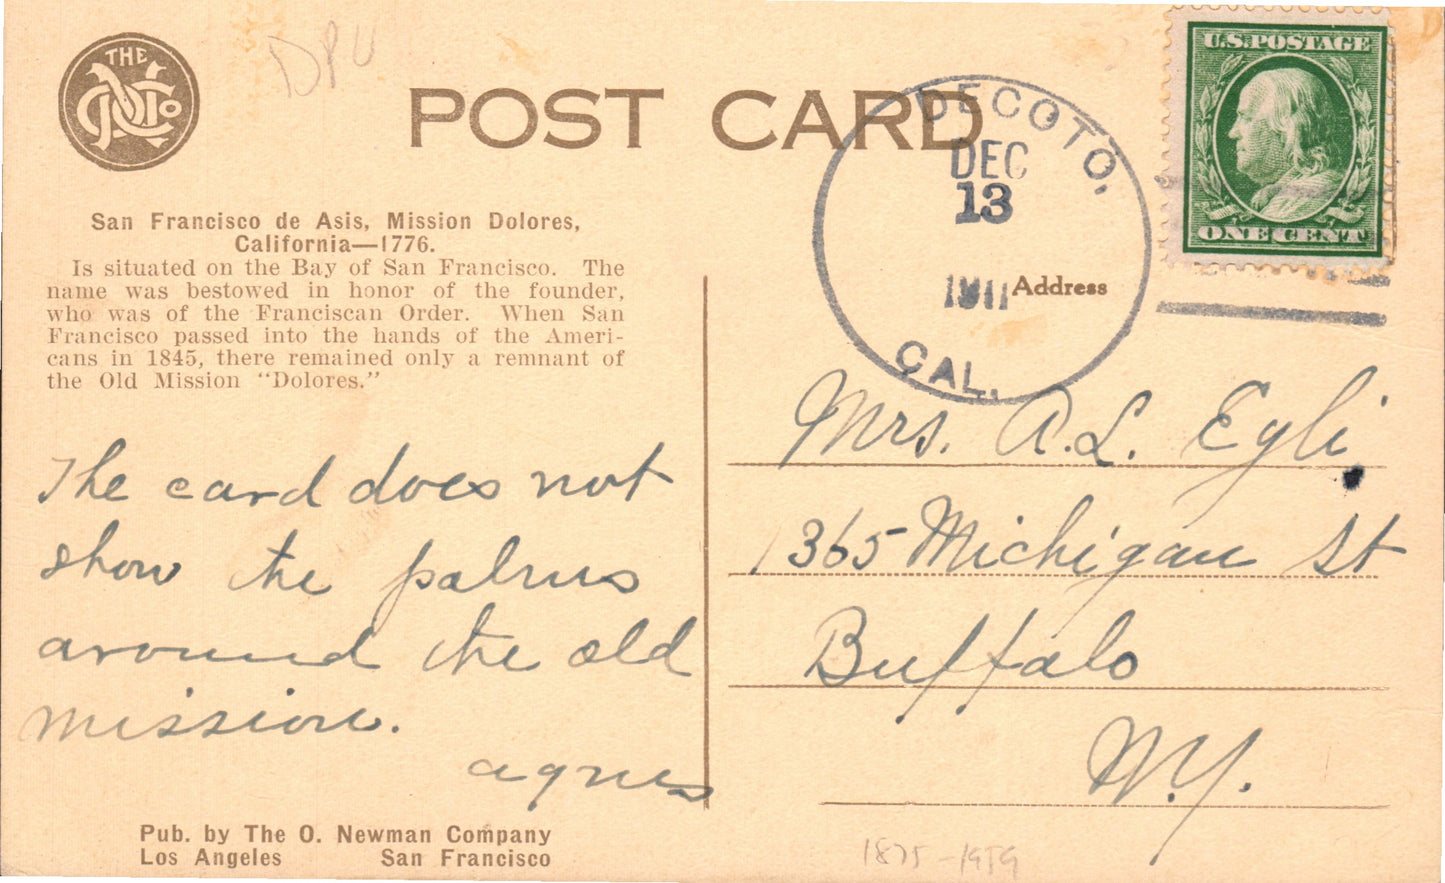 THE
ONCo
DPU
POST CARD
DECOTO,
DEC
13
1911
CAL.
U.S. POSTAGE
ONE CENT
San Francisco de Asis, Mission Dolores,
California—1776.
Is situated on the Bay of San Francisco. The
name was bestowed in honor of the founder,
who was of the Franciscan Order. When San
Francisco passed into the hands of the Ameri-
cans in 1845, there remained only a remnant of
the Old Mission “Dolores.”
The card does not
show the palms
around the old
mission.
agnes
Address
Mrs. A. L. Egli
1365 Michigan St
Buffalo
N.Y.
Pub. by The O. Newman Company
Los Angeles San Francisco
1875-1959